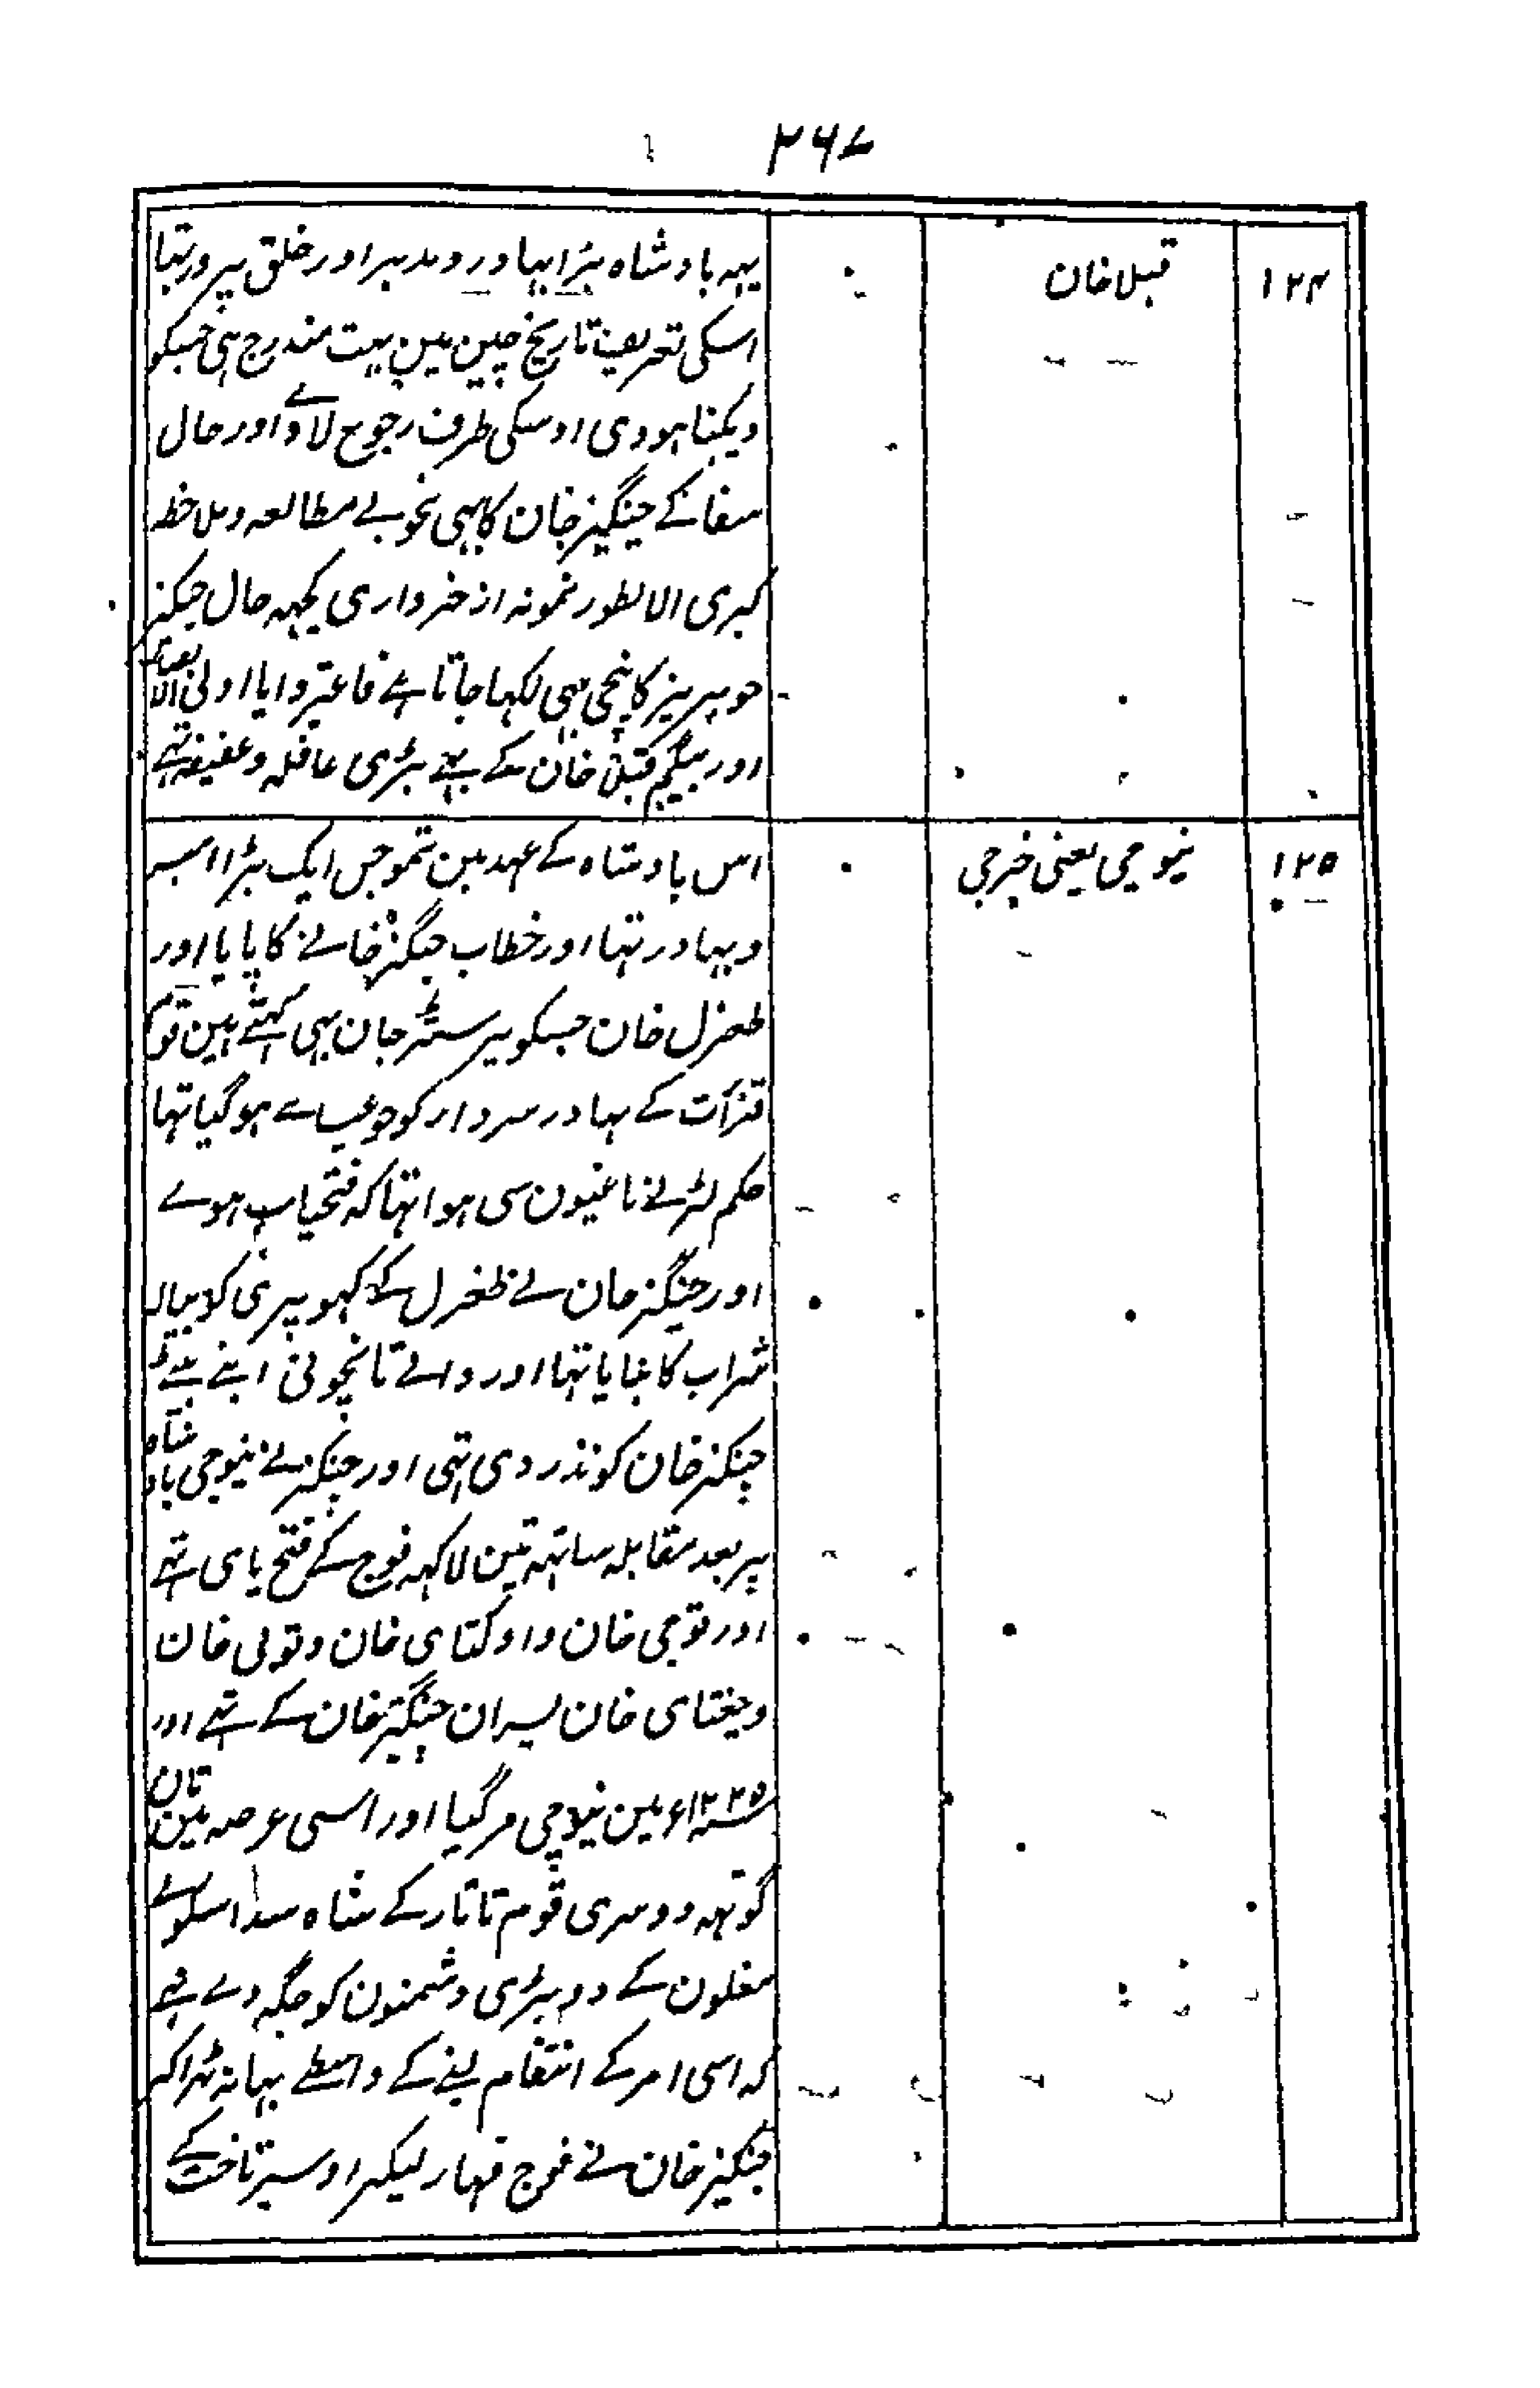 ۲۶۷
۱۲۴
قبلا خان
یہہ بادشاہ بڑا بہادر و مدبر اور خلق پرور تہا
اسکی تعریف تاریخ چین مین بہت مندرج ہی جسکو
دیکہنا ہووی اوسکی طرف رجوع لاوے اور حال
سفاکے چنگیز خان کا بہی نحوبے مطالعہ و ملاخطہ
کری الا بطور نمونہ از خرواری کچہہ حال چنگیز
خونریز کا نحی بہی لکہا جاتا ہے فاعتبروا یا اولی الابصار
اور بیگم قبلا خان کے بہے بڑی عاقلہ و عفیفہ تہے
۱۲۵
نیوجی یعنی خرجی
اس بادشاہ کے عہد مین تموجن ایک بڑا امیر
و بہادر تہا اور خطاب چنگیز خانے کا پایا اور
طغرل خان جسکو پرسٹر جان بہی کہتے ہین قوم
قزآت کے بہادر سردار کو جو عیسائے ہو گیا تہا
حکم لڑنے باغیون سی ہوا تہا کہ فتحیاب ہوے
اور چنگیز خان نے طغرل کے کہوپری کا پیالہ
شراب کا بنایا تہا اور والے تانچونی اپنے بیٹے
چنگیز خان کو نذر دی تہی اور چنگیز نے نیوجی بادشاہ
پر بعد مقابلہ ساتہہ تین لاکہہ فوج کے فتح پای تہے
اور توجی خان و اوکتای خان و تولی خان
و چغتای خان پسران چنگیز خان کے تہے اور
سنہ ۱۲۲۵ء مین نیوجی مر گیا اور اسی عرصہ مین تان
گوتہہ دوسری قوم تاتار کے شاہ سداسکو نے
مغلون کے دو بڑی دشمنون کو جگہ دے تہے
کہ اسی امر کے انتقام لینے کے واسطے بہانہ ٹہراکر
چنگیز خان نے فوج قہار لیکر اوسپر تاخت کے